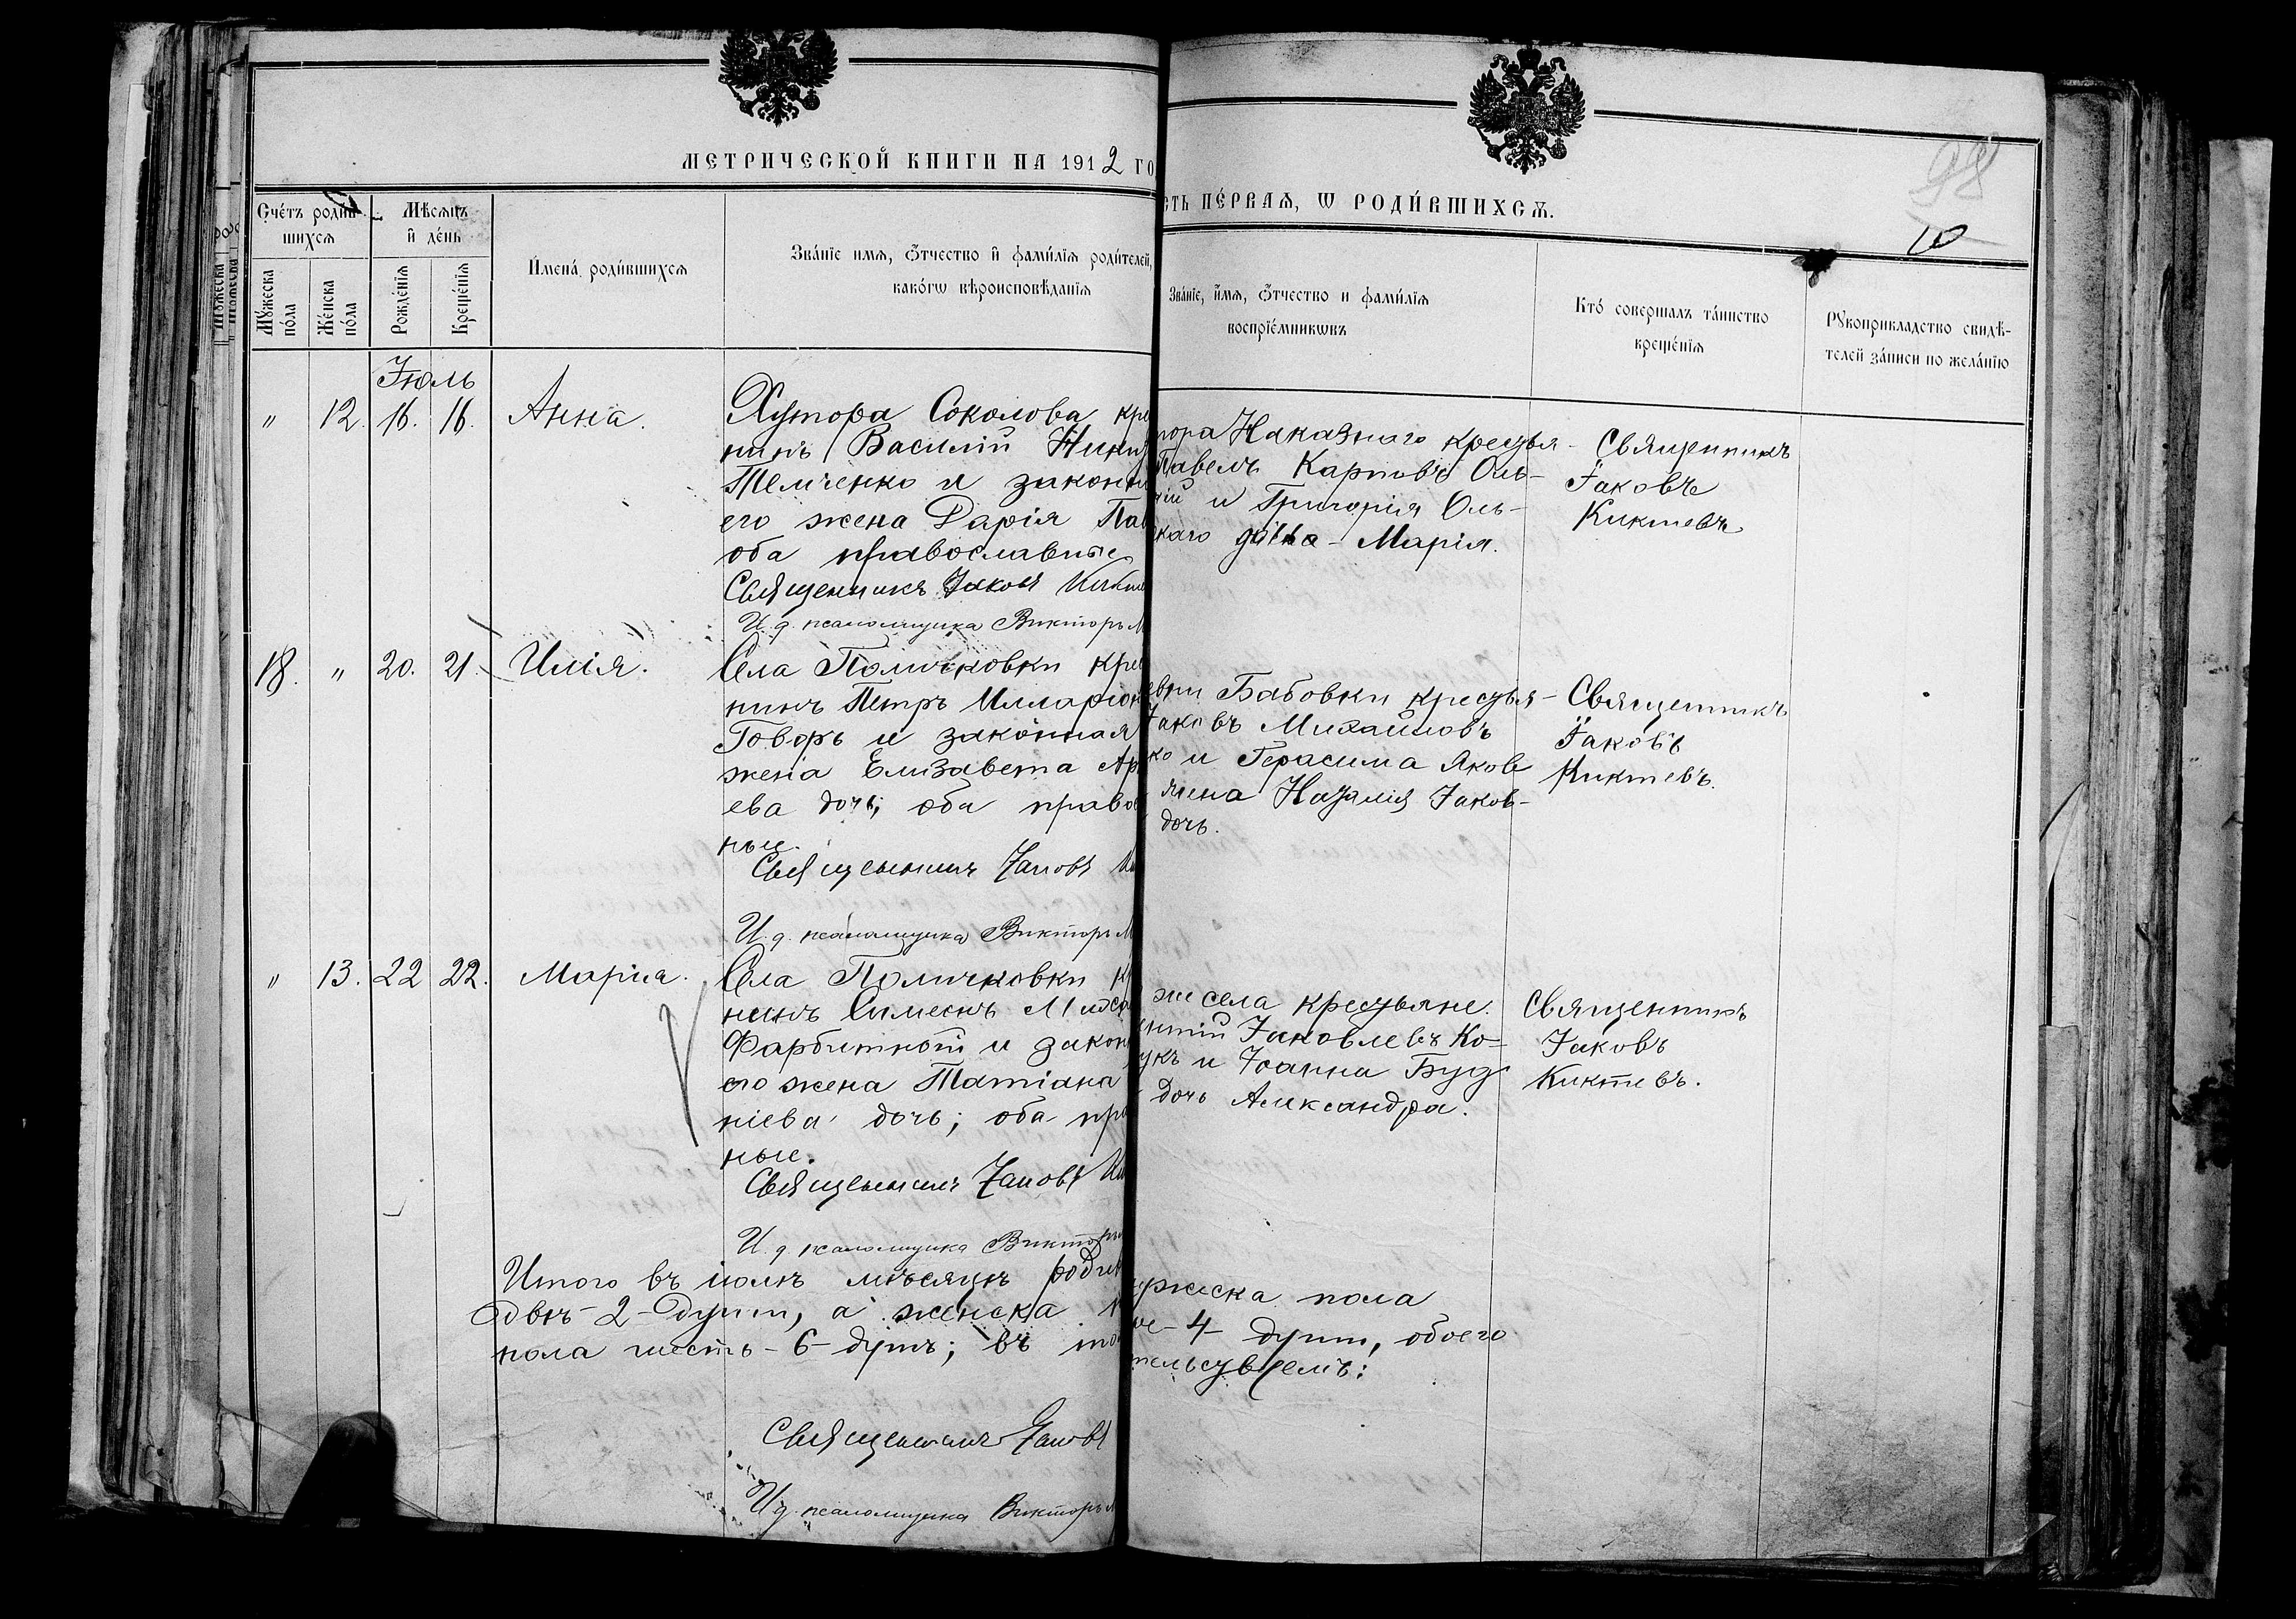 МЕТРИЧЕСКОЙ КНИГИ НА 1912 ГО
СТЬ ПЕ́РВАѦ, Ѡ РОДИ́ВШИХСѦ.
98
10
Сче́тъ роди́в-
шихсѧ
Мѣсѧцъ
и҆ де́нь
Мꙋ́жеска по́ла
Же́нска по́ла
Рожде́нїѧ
Креще́нїѧ
И҆мена́ роди́вшихсѧ
Зва́нїе имѧ, ѻ҆тчество и҆ фами́лїѧ роди́телей,
како́гѡ вѣроисповѣ́данїѧ
Зва́нїе, и҆мѧ, ѻ҆тчество и фами́лїѧ
воспрїе́мникѡвъ
Кто́ соверша́лъ та́инство
креще́нїѧ
Рꙋкоприкладство свидѣ-
телей за́писи по жела́нїю
Іюль
" 12. 16. 16. Анна.
Хутора Соколова кре
нинъ Василій Ники
Темченко и законн
его жена Дарія Пав
оба православные
Священникъ Іаковъ Кикте
И. д. псаломщика Викторъ М
тора Наказнаго крестья-
Павелъ Карповъ Оль-
кій и Григорія Оль-
скаго дочка - Марія.
Священникъ
Іаковъ
Киктевъ
18. " 20. 21. Илія.
Села Поличковки кре
нинъ Петръ Илларіон
Говоръ и законная
жена Елизавета Ар
ева дочь; оба право
ные.
Священникъ Іаковъ Ки
И. д. псаломщика Викторъ М
евни Бабовки крестья-
Іаковъ Михайловъ
ко и Герасима Яков
жена Наталія Іаков-
дочь.
Священникъ
Іаковъ
Киктевъ.
" 13. 22 22. Марія.
Села Поличковки к
нинъ Симеонъ
Фарбитной и закон
его жена Татіана
ніева дочь; оба пра
ные.
Священникъ Іаковъ Ки
И. д. псаломщика Викторъ
же села крестьяне.
ентій Іаковлевъ Ко-
укъ и Іоанна Буд
дочь Александра.
Священникъ
Іаковъ
Киктевъ.
Итого въ іюлѣ мѣсяцѣ роди
ужеска пола
двѣ - 2 - души, а женска п
ре - 4 - души, обоего
пола шесть - 6 - душъ; въ то
тельствуемъ:
Священникъ Іаковъ
И. д. псаломщика Викторъ М